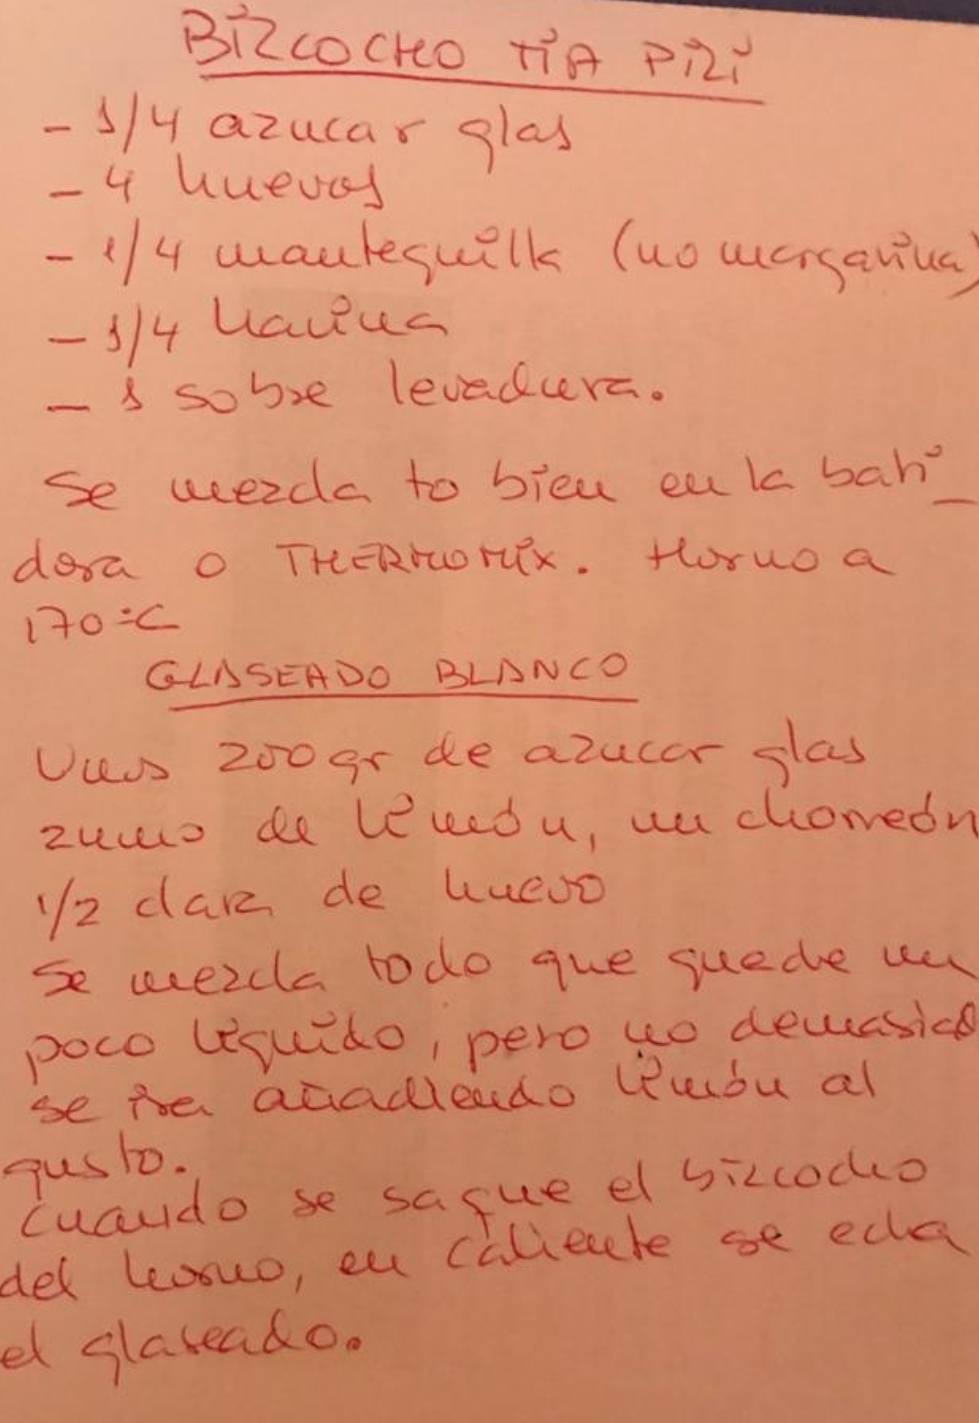 BIZCOCHO TÍA PIZI
- 1/4 azucar glas
- 4 huevos
- 1/4 mantequilla (no margarina)
- 1/4 harina
- 1 sobre levadura.
Se mezcla to bien en la bati_
dora o THERMOMIX. Horno a
170ºC
GLASEADO BLANCO
Unos 200 gr de azucar glas
zumo de limón, un chorreón
1/2 clara de huevo
se mezcla todo que quede un
poco líquido, pero no demasiado
se ira añadiendo limón al
gusto.
Cuando se saque el bizcocho
del horno, en caliente se echa
el glaseado.